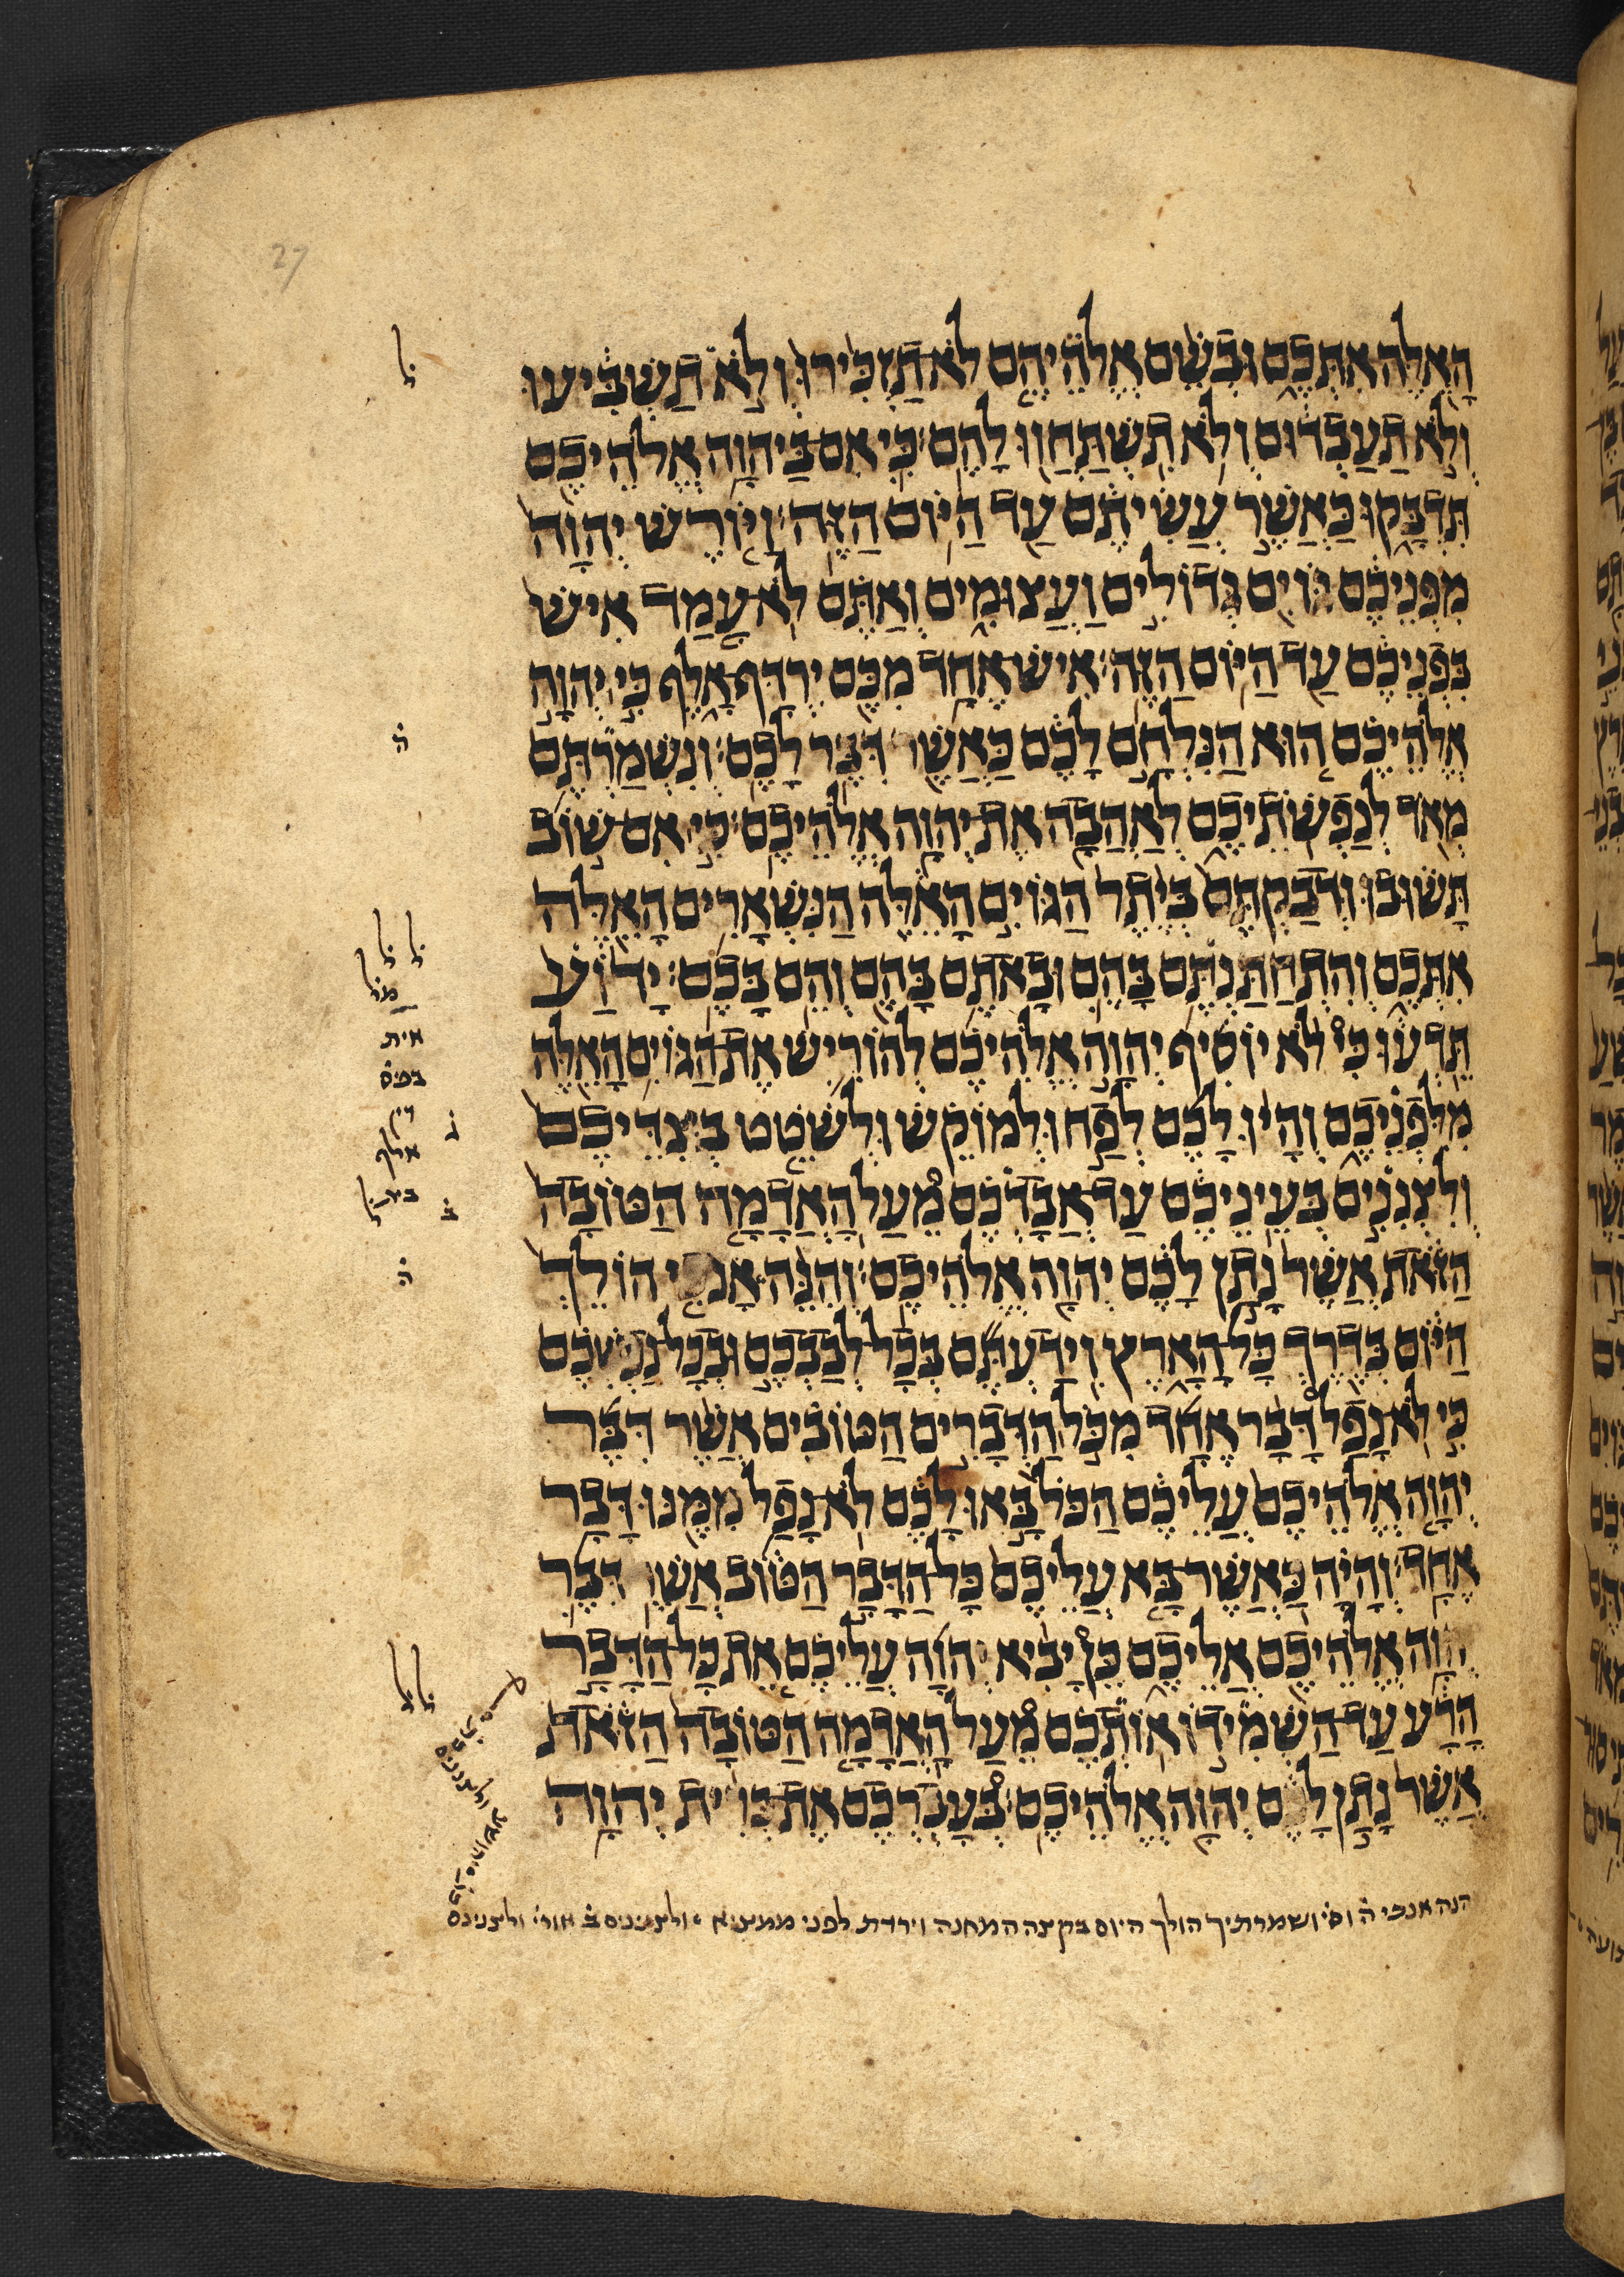 27
הָאֵלֶּה אִתְּכֶם וּבְשֵׁם אֱלֹהֵיהֶם לֹא תַזְכִּירוּ וְלֹא תַשְׁבִּיעוּ
וְלֹא תַעַבְדוּם וְלֹא תִשְׁתַּחֲווּ לָהֶם׃ כִּי אִם בַּיהוָה אֱלֹהֵיכֶם
תִּדְבָּקוּ כַּאֲשֶׁר עֲשִׂיתֶם עַד הַיּוֹם הַזֶּה׃ וַיּוֹרֶשׁ יְהוָה
מִפְּנֵיכֶם גּוֹיִם גְּדוֹלִים וַעֲצוּמִים וְאַתֶּם לֹא עָמַד אִישׁ
בִּפְנֵיכֶם עַד הַיּוֹם הַזֶּה׃ אִישׁ אֶחָד מִכֶּם יִרְדָּף אָלֶף כִּי יְהוָה
אֱלֹהֵיכֶם הוּא הַנִּלְחָם לָכֶם כַּאֲשֶׁר דִּבֶּר לָכֶם׃ וְנִשְׁמַרְתֶּם
מְאֹד לְנַפְשֹׁתֵיכֶם לְאַהֲבָה אֶת יְהוָה אֱלֹהֵיכֶם׃ כִּי אִם שׁוֹב
תָּשׁוּבוּ וּדְבַקְתֶּם בְּיֶתֶר הַגּוֹיִם הָאֵלֶּה הַנִּשְׁאָרִים הָאֵלֶּה
אִתְּכֶם וְהִתְחַתַּנְתֶּם בָּהֶם וּבָאתֶם בָּהֶם וְהֵם בָּכֶם׃ יָדוֹעַ
תֵּדְעוּ כִּי לֹא יוֹסִיף יְהוָה אֱלֹהֵיכֶם לְהוֹרִישׁ אֶת הַגּוֹיִם הָאֵלֶּה
מִלִּפְנֵיכֶם וְהָיוּ לָכֶם לְפַח וּלְמוֹקֵשׁ וּלְשֹׁטֵט בְּצִדֵּיכֶם
וְלִצְנִנִים בְּעֵינֵיכֶם עַד אֲבָדְכֶם מֵעַל הָאֲדָמָה הַטּוֹבָה
הַזֹּאת אֲשֶׁר נָתַן לָכֶם יְהוָה אֱלֹהֵיכֶם׃ וְהִנֵּה אָנֹכִי הוֹלֵךְ
הַיּוֹם בְּדֶרֶךְ כָּל הָאָרֶץ וִידַעְתֶּם בְּכָל לְבַבְכֶם וּבְכָל נַפְשְׁכֶם
כִּי לֹא נָפַל דָּבָר אֶחָד מִכֹּל הַדְּבָרִים הַטּוֹבִים אֲשֶׁר דִּבֶּר
יְהוָה אֱלֹהֵיכֶם עֲלֵיכֶם הַכֹּל בָּאוּ לָכֶם לֹא נָפַל מִמֶּנּוּ דָּבָר
אֶחָד׃ וְהָיָה כַּאֲשֶׁר בָּא עֲלֵיכֶם כָּל הַדָּבָר הַטּוֹב אֲשֶׁר דִּבֶּר
יְהוָה אֱלֹהֵיכֶם אֲלֵיכֶם כֵּן יָבִיא יְהוָה עֲלֵיכֶם אֵת כָּל הַדָּבָר
הָרָע עַד הַשְׁמִידוֹ אוֹתְכֶם מֵעַל הָאֲדָמָה הַטּוֹבָה הַזֹּאת
אֲשֶׁר נָתַן לָכֶם יְהוָה אֱלֹהֵיכֶם׃ בְּעָבְרְכֶם אֶת בְּרִית יְהוָה
ל
ה
ל ל
אית
בפס
אלף
ג
ב
ה
ל ל
הנה אנכי ה וס ושמרתיך הולך היום בקצה המחנה וירדת לפני ולצנינים ב אורי ולצנינם